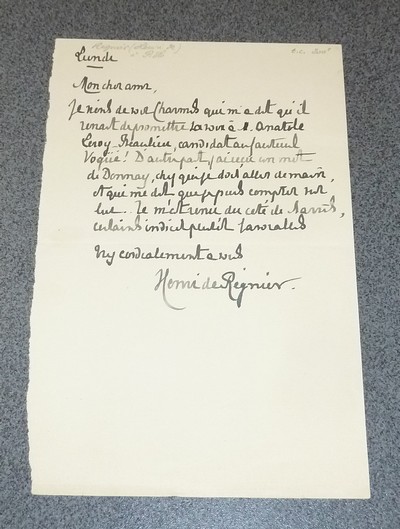 Lundi
Mon cher ami,
Je viens de voir Charmes qui m'a dit qu'il
venait de promettre sa voix à M. Anatole
Leroy-Beaulieu, candidat au fauteuil
Vogüé! D'autre part j'ai reçu un mot
de Donnay, chez qui je dois aller demain,
et qui me dit que je puis compter sur
lui. Il m'est revenu du côté de Barrès,
certains indices plutôt favorables
Bien cordialement à vous
Henri de Régnier.